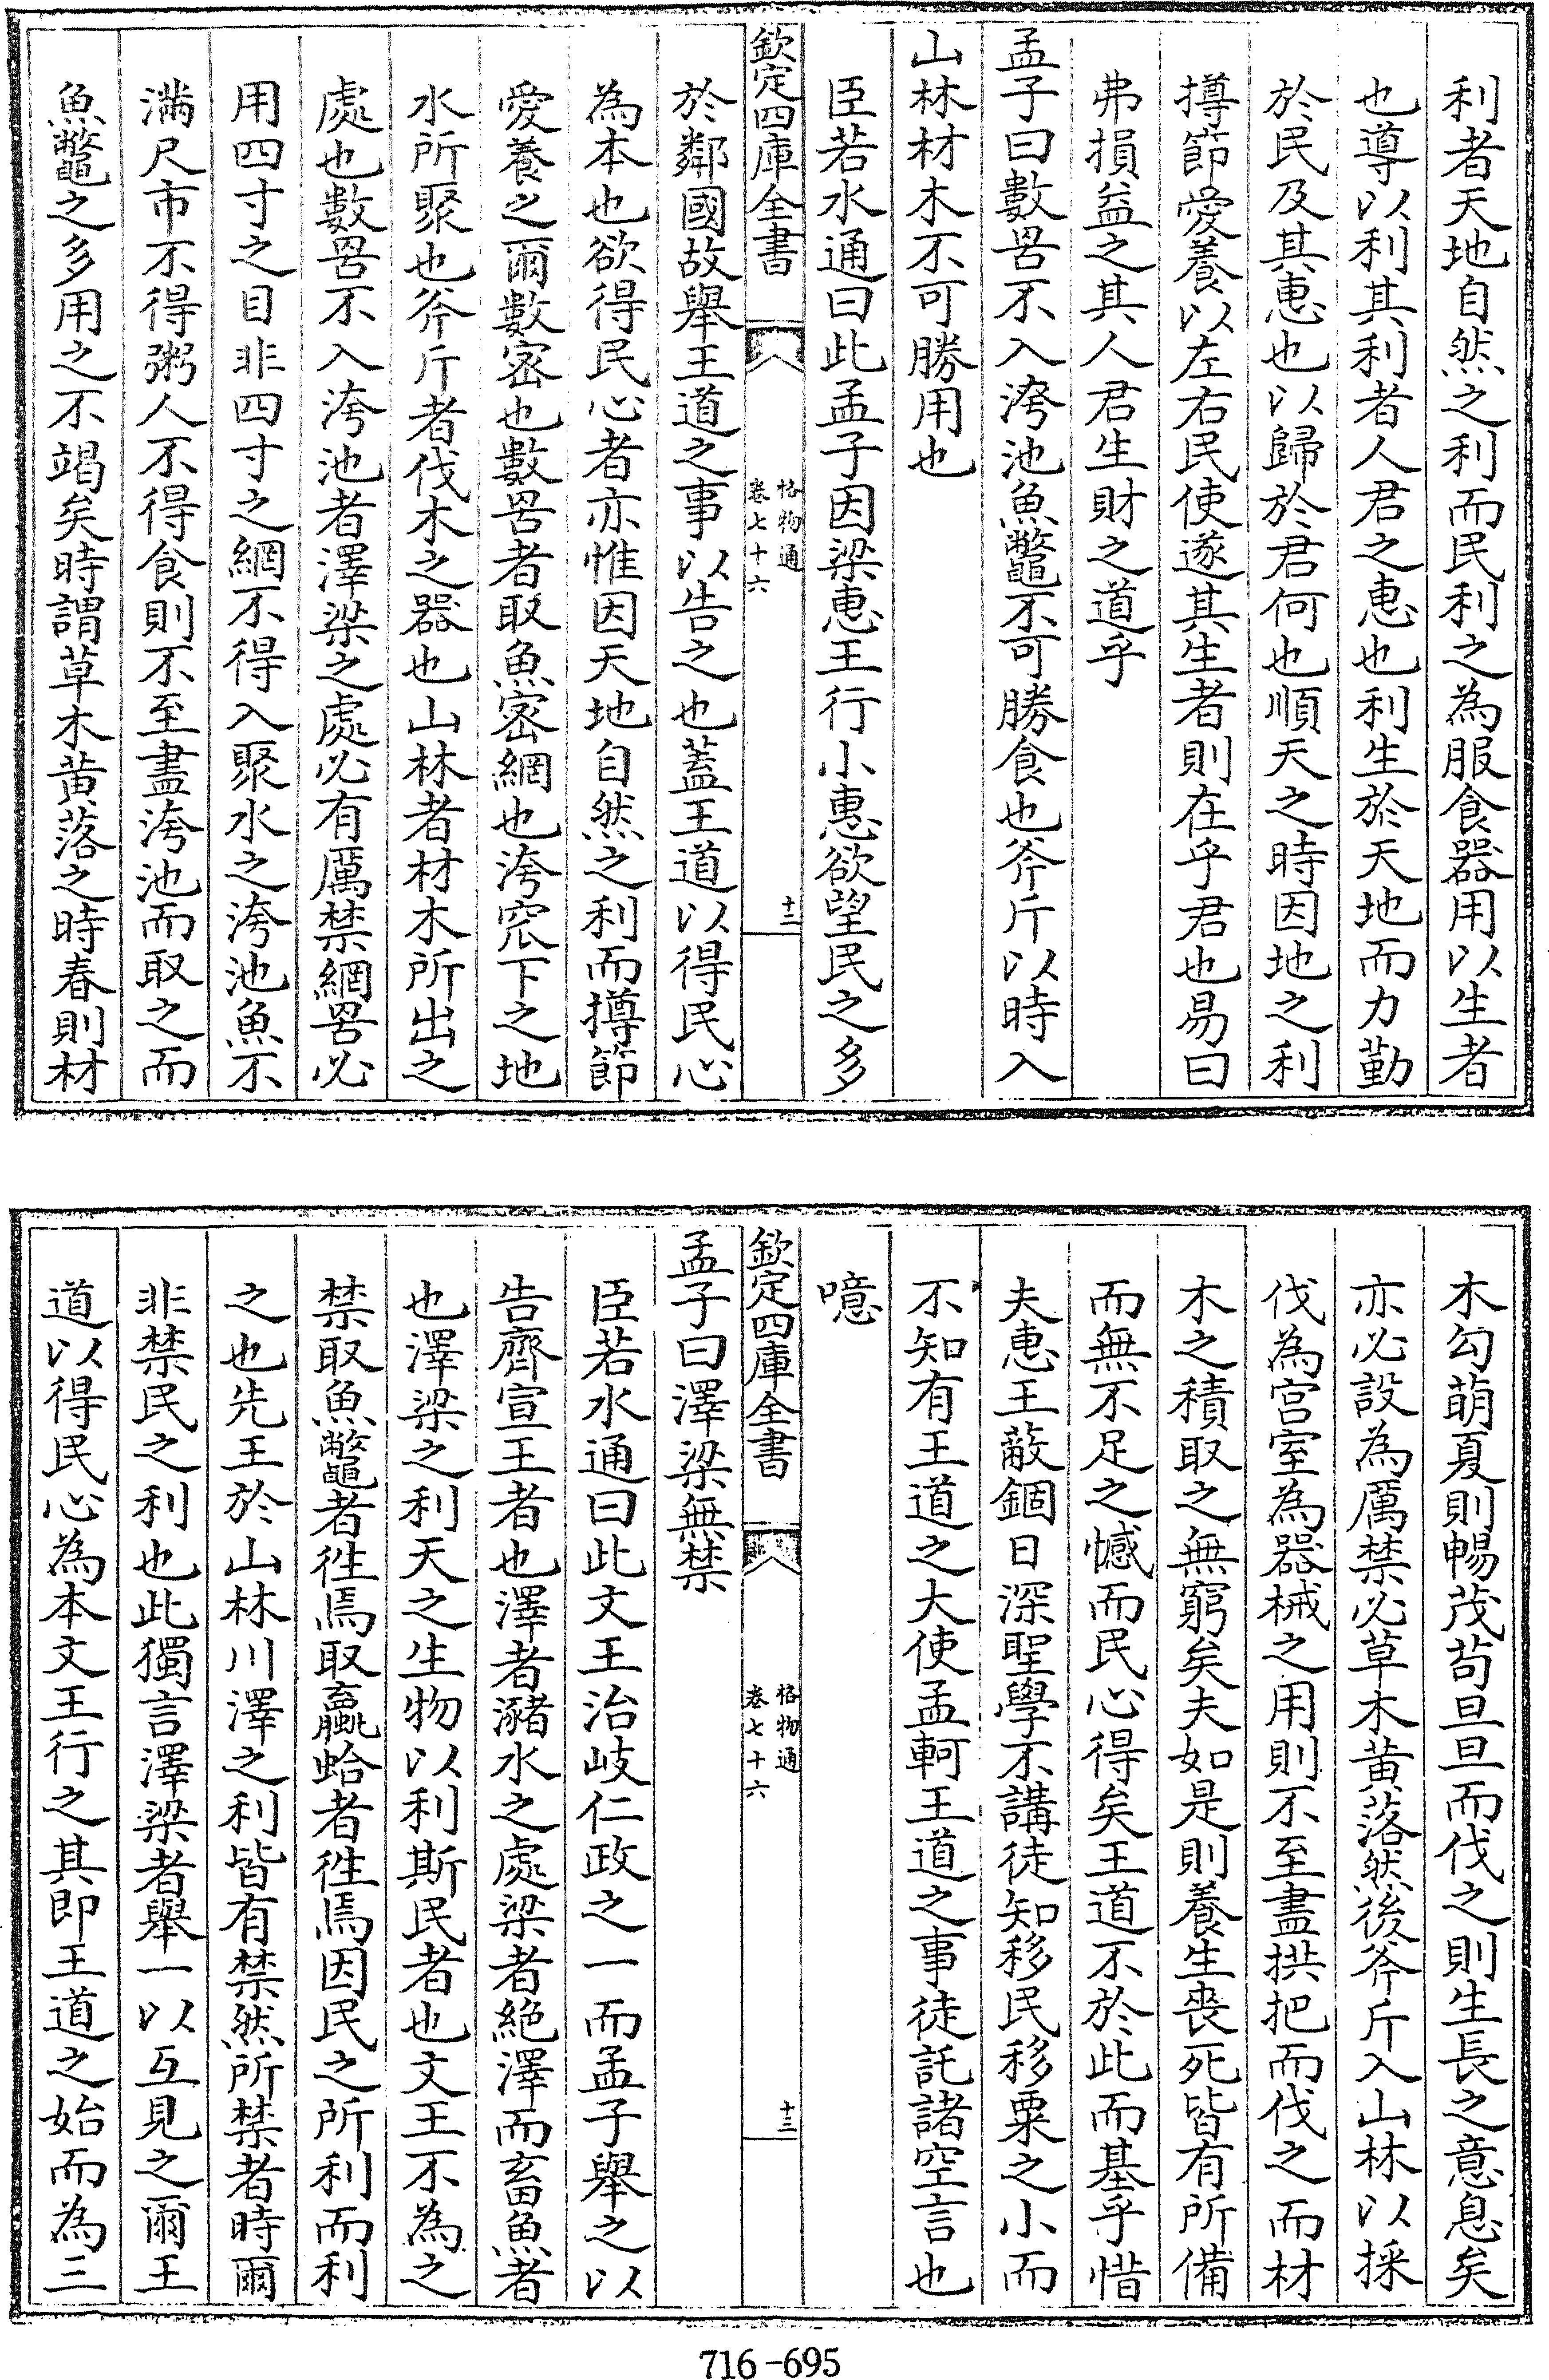 利者天地自然之利而民利之為服食器用以生者
也導以利其利者人君之惠也利生於天地而力勤
於民及其惠也以歸於君何也順天之時因地之利
撙節愛養以左右民使遂其生者則在乎君也易曰
弗損益之其人君生財之道乎
孟子曰數罟不入洿池魚鼈不可勝食也斧斤以時入
山林材木不可勝用也
臣若水通曰此孟子因梁惠王行小惠欲望民之多
欽定四庫全書
格物通
卷七十六
十二
於鄰國故舉王道之事以告之也蓋王道以得民心
為本也欲得民心者亦惟因天地自然之利而撙節
愛養之爾數密也數罟者取魚密網也洿窊下之地
水所聚也斧斤者伐木之器也山林者材木所出之
處也數罟不入洿池者澤梁之處必有厲禁網罟必
用四寸之目非四寸之網不得入聚水之洿池魚不
滿尺市不得粥人不得食則不至盡洿池而取之而
魚鼈之多用之不竭矣時謂草木黄落之時春則材
木勾萌夏則暢茂苟旦旦而伐之則生長之意息矣
亦必設為厲禁必草木黄落然後斧斤入山林以採
伐為宫室為器械之用則不至盡拱把而伐之而材
木之積取之無窮矣夫如是則養生喪死皆有所備
而無不足之憾而民心得矣王道不於此而基乎惜
夫惠王蔽錮日深聖學不講徒知移民移粟之小而
不知有王道之大使孟軻王道之事徒託諸空言也
噫
欽定四庫全書
格物通
卷七十六
十三
孟子曰澤梁無禁
臣若水通曰此文王治岐仁政之一而孟子舉之以
告齊宣王者也澤者瀦水之處梁者絶澤而畜魚者
也澤梁之利天之生物以利斯民者也文王不為之
禁取魚鼈者徃焉取蠃蛤者徃焉因民之所利而利
之也先王於山林川澤之利皆有禁然所禁者時爾
非禁民之利也此獨言澤梁者舉一以互見之爾王
道以得民心為本文王行之其即王道之始而為三
716-695